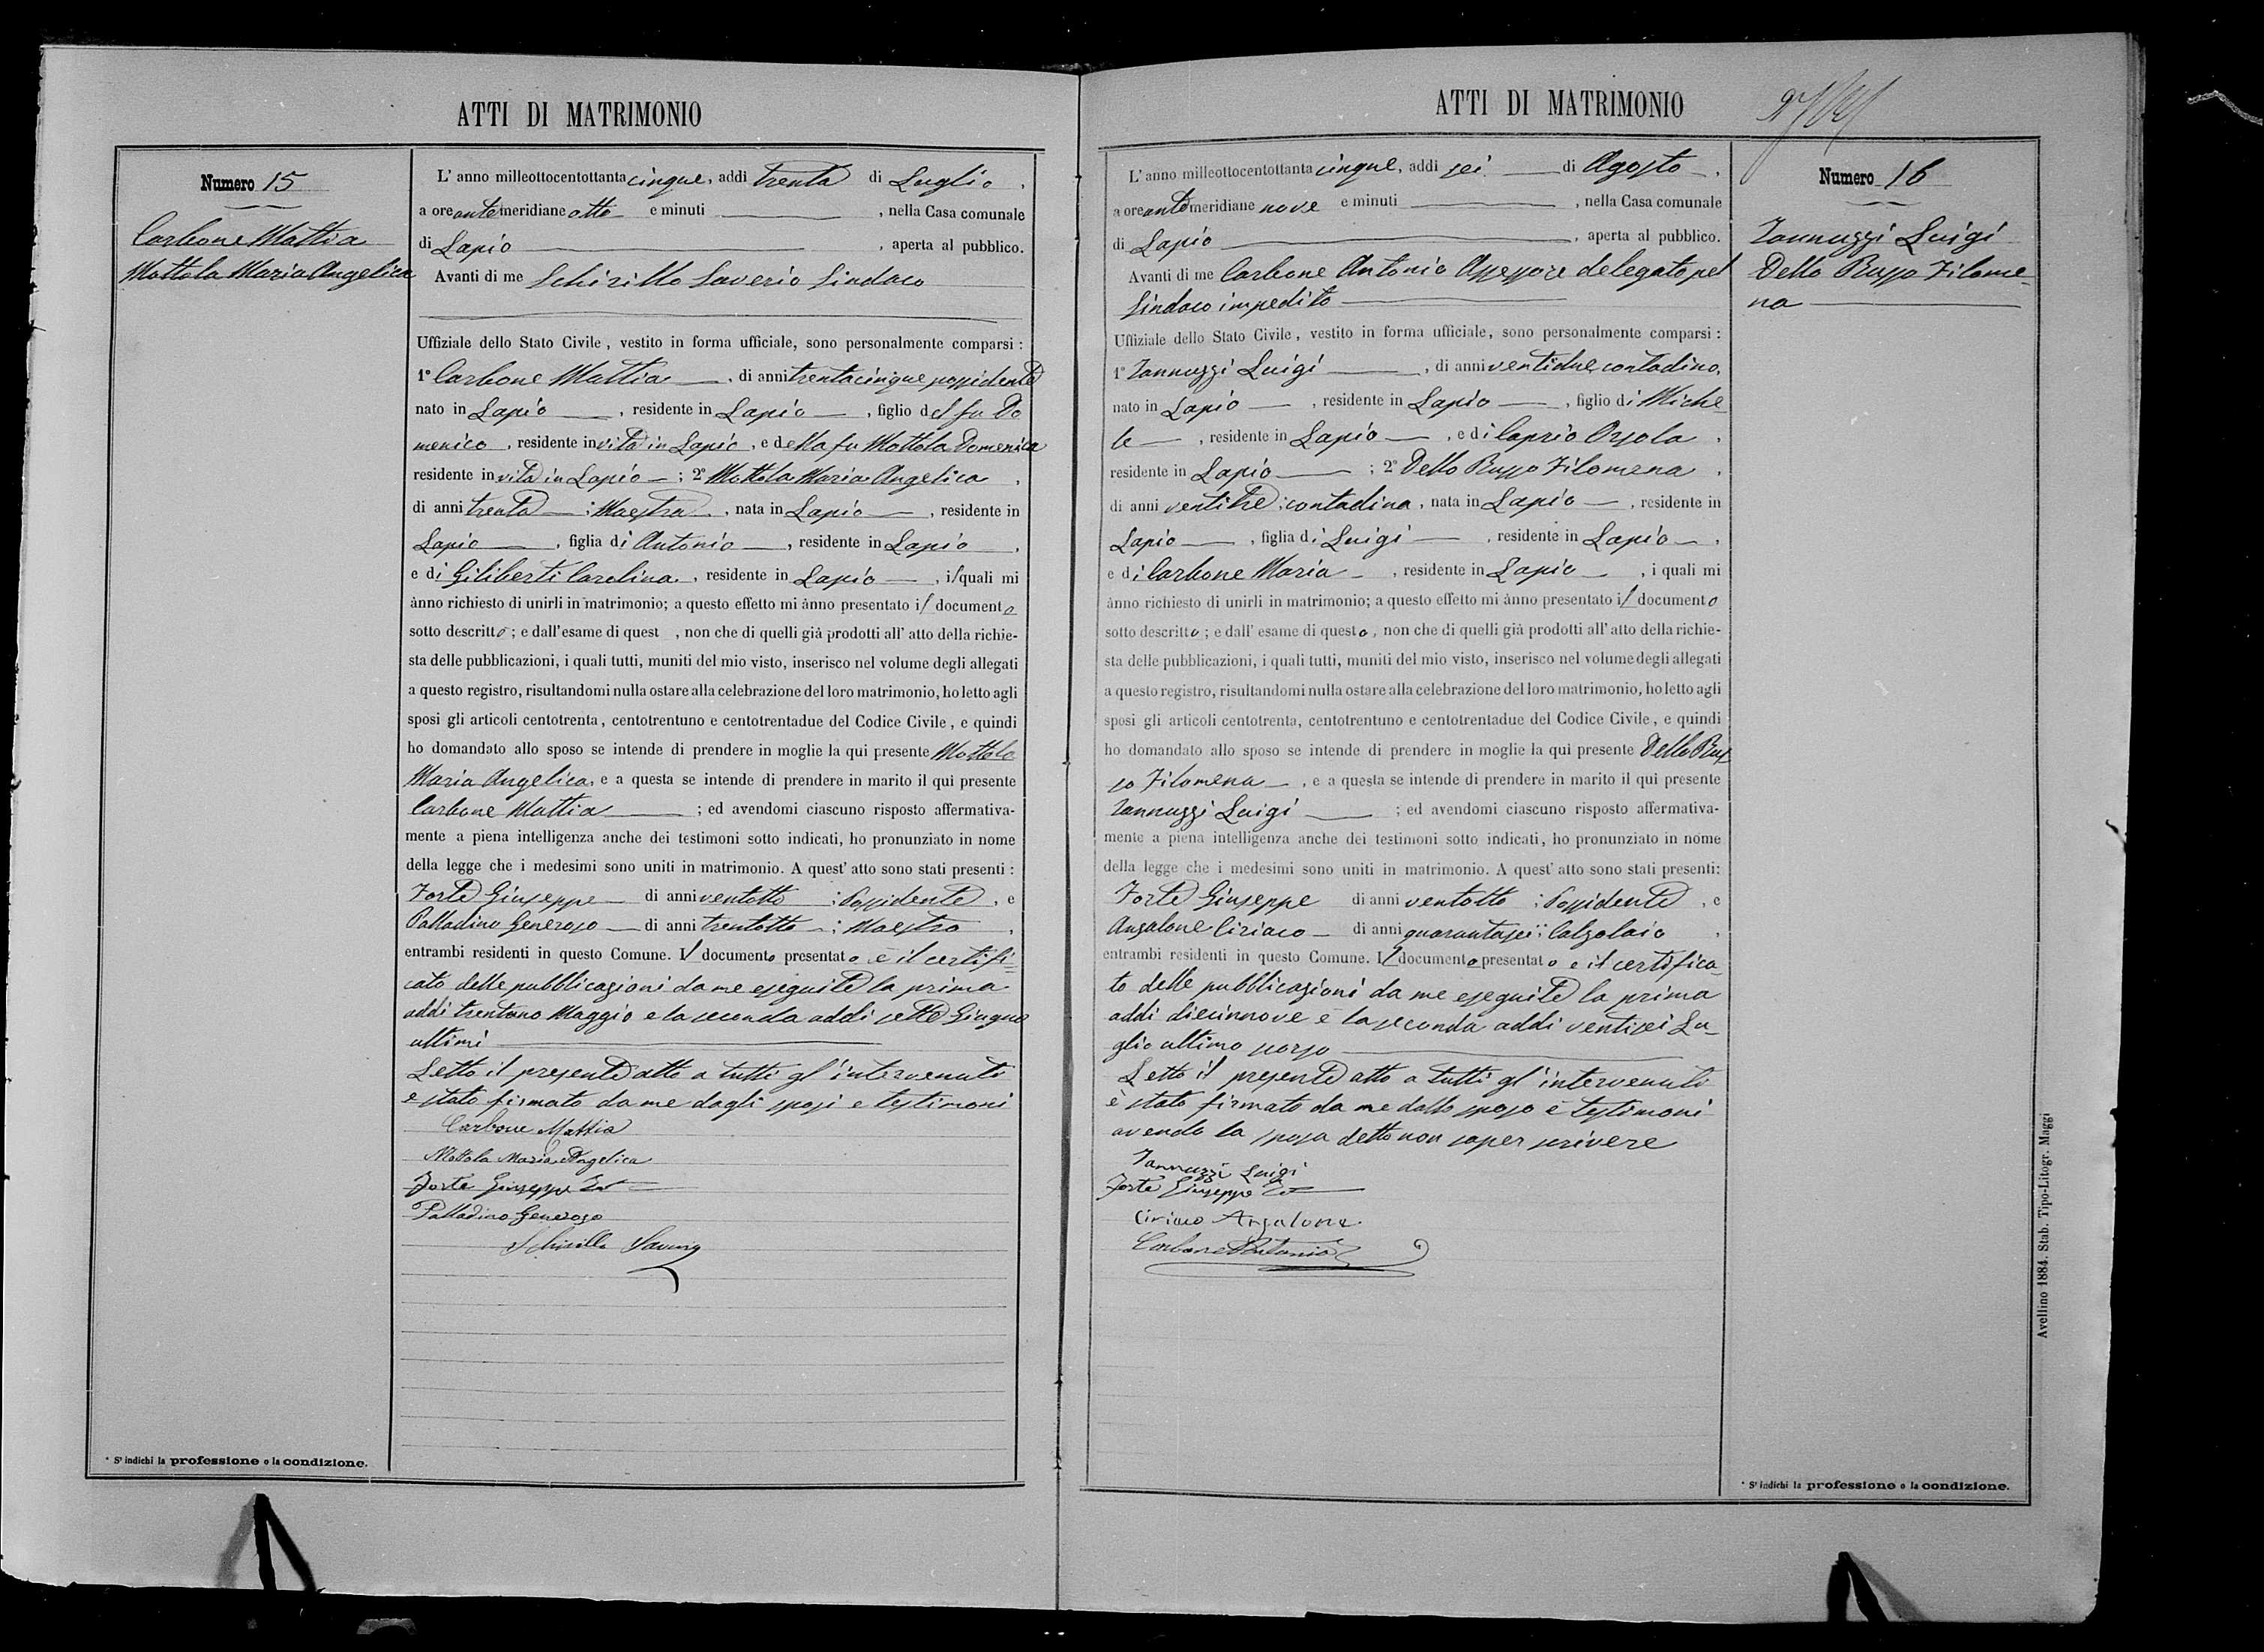 ATTI DI MATRIMONIO
Numero 15
Carbone Mattia
Mottola Maria Angelica
L' anno milleottocentottanta cinque, addi trenta di Luglio,
a ore ante meridiane otto e minuti , nella Casa comunale
di Lapio , aperta al pubblico.
Avanti di me Schirillo Saverio Sindaco
Uffiziale dello Stato Civile, vestito in forma ufficiale, sono personalmente comparsi :
1° Carbone Mattia , di anni trentacinque possidente
nato in Lapio , residente in Lapio , figlio del fu Do
menico , residente in vita in Lapio , e della fu Mottola Domenica
residente in vita in Lapio ; 2° Mottola Maria Angelica ,
di anni trenta ; Maestra , nata in Lapio , residente in
Lapio , figlia di Antonio , residente in Lapio ,
e di Giliberti Carolina , residente in Lapio , i quali mi
ànno richiesto di unirli in matrimonio; a questo effetto mi ànno presentato il documento
sotto descritto ; e dall'esame di quest , non che di quelli già prodotti all' atto della richie-
sta delle pubblicazioni, i quali tutti, muniti del mio visto, inserisco nel volume degli allegati
a questo registro, risultandomi nulla ostare alla celebrazione del loro matrimonio, ho letto agli
sposi gli articoli centotrenta, centotrentuno e centotrentadue del Codice Civile, e quindi
ho domandato allo sposo se intende di prendere in moglie la qui presente Mottola
Maria Angelica, e a questa se intende di prendere in marito il qui presente
Carbone Mattia ; ed avendomi ciascuno risposto affermativa-
mente a piena intelligenza anche dei testimoni sotto indicati, ho pronunziato in nome
della legge che i medesimi sono uniti in matrimonio. A quest' atto sono stati presenti :
Forte Giuseppe di anni ventotto ; Possidente , e
Palladino Generoso di anni trentotto ; Maestro ,
entrambi residenti in questo Comune. Il documento presentato è il certifi=
cato delle pubblicazioni da me eseguite la prima
addi trentuno Maggio e la seconda addi sette Giugno
ultimi
Letto il presente atto a tutti gl'intervenuti
è stato firmato da me dagli sposi e testimoni
Carbone Mattia
Mottola Maria Angelica
Forte Giuseppe
Palladino Generoso
Schirillo Saverio
* S' indichi la professione o la condizione.
ATTI DI MATRIMONIO
Numero 16
Iannuzzi Luigi
Dello Russo Filome-
na
L' anno milleottocentottanta cinque, addi sei di Agosto ,
a ore ante meridiane nove e minuti , nella Casa comunale
di Lapio , aperta al pubblico.
Avanti di me Carbone Antonio Assessore delegato pel
Sindaco impedito
Uffiziale dello Stato Civile, vestito in forma ufficiale, sono personalmente comparsi :
1° Iannuzzi Luigi , di anni ventidue contadino,
nato in Lapio , residente in Lapio , figlio di Miche
le , residente in Lapio , e di Caprio Orsola ,
residente in Lapio ; 2° Dello Russo Filomena ,
di anni ventitre ; contadina , nata in Lapio , residente in
Lapio , figlia di Luigi , residente in Lapio ,
e di Carbone Maria , residente in Lapio , i quali mi
ànno richiesto di unirli in matrimonio; a questo effetto mi ànno presentato il documento
sotto descritto ; e dall' esame di questo , non che di quelli già prodotti all' atto della richie-
sta delle pubblicazioni, i quali tutti, muniti del mio visto, inserisco nel volume degli allegati
a questo registro, risultandomi nulla ostare alla celebrazione del loro matrimonio, ho letto agli
sposi gli articoli centotrenta, centotrentuno e centotrentadue del Codice Civile, e quindi
ho domandato allo sposo se intende di prendere in moglie la qui presente Dello Rus
so Filomena , e a questa se intende di prendere in marito il qui presente
Iannuzzi Luigi ; ed avendomi ciascuno risposto affermativa-
mente a piena intelligenza anche dei testimoni sotto indicati, ho pronunziato in nome
della legge che i medesimi sono uniti in matrimonio. A quest' atto sono stati presenti:
Forte Giuseppe di anni ventotto ; Possidente , e
Ansalone Ciriaco di anni quarantasei ; Calzolaio ,
entrambi residenti in questo Comune. Il documento presentato e il certifica-
to delle pubblicazioni da me eseguite la prima
addi diecinnove e la seconda addi ventisei Lu-
glio ultimo scorso
Letto il presente atto a tutti gl'intervenuti
è stato firmato da me dallo sposo e testimoni
avendo la sposa detto non saper scrivere
Iannuzzi Luigi
Forte Giuseppe
Ciriaco Ansalone
Carbone Antonio
* S' indichi la professione o la condizione.
Avellino 1884. Stab. Tipo-Litogr. Maggi